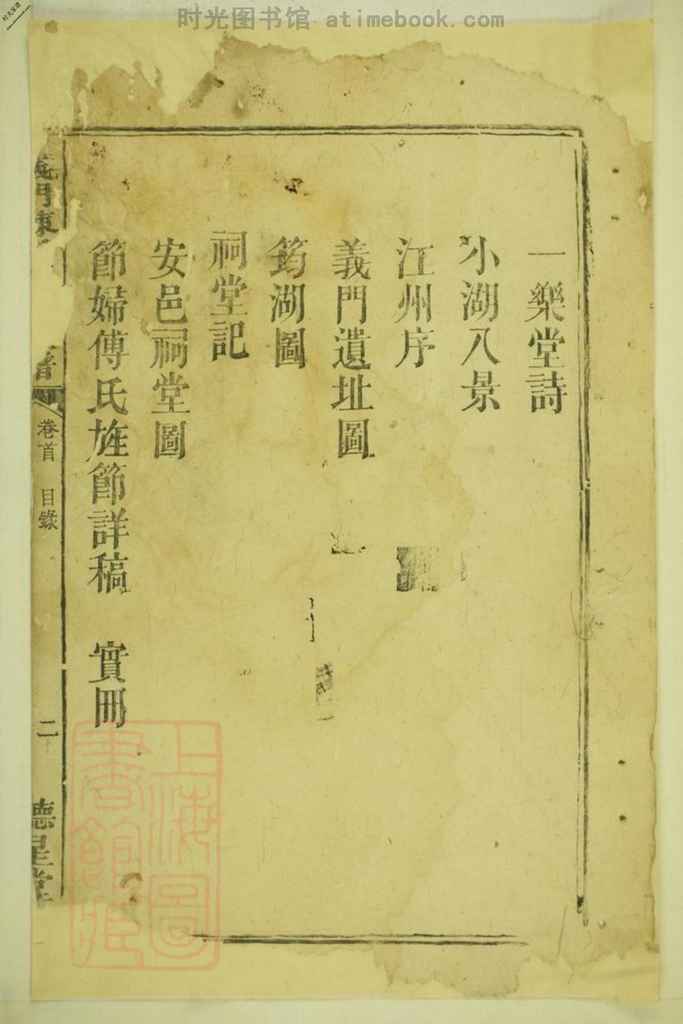 时光图书馆 atimebook.com
一樂堂詩
小湖八景
江州序
義門遺址圖
筠湖圖
祠堂記
安邑祠堂圖
節婦傅氏旌節詳稿 實冊
義門陳
譜
卷首 目錄
二
德星堂
上海圖
書館